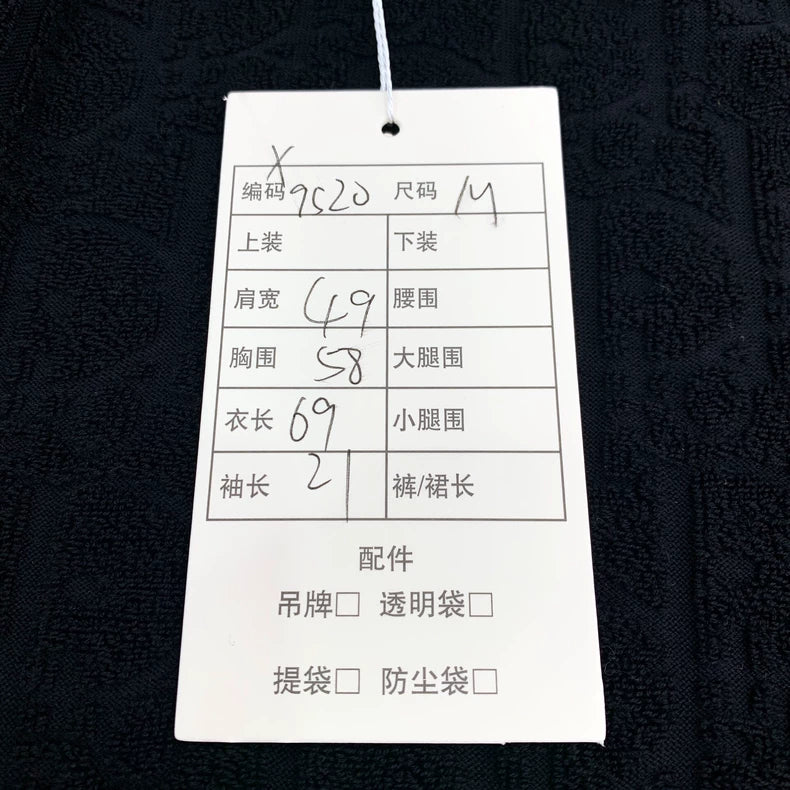 编码 X9520 尺码 M
上装 下装
肩宽 49 腰围
胸围 58 大腿围
衣长 69 小腿围
袖长 21 裤/裙长
配件
吊牌□ 透明袋□
提袋□ 防尘袋□